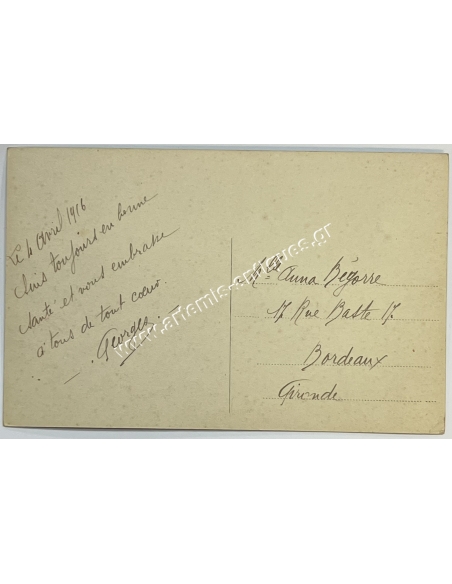 Le 4 Avril 1916
Suis toujours en bonne
santé et vous embrasse
à tous de tout cœur
Georges
Mlle Anna Bégorre
17 Rue Baste 17
Bordeaux
Gironde
www.artemis-antiques.gr